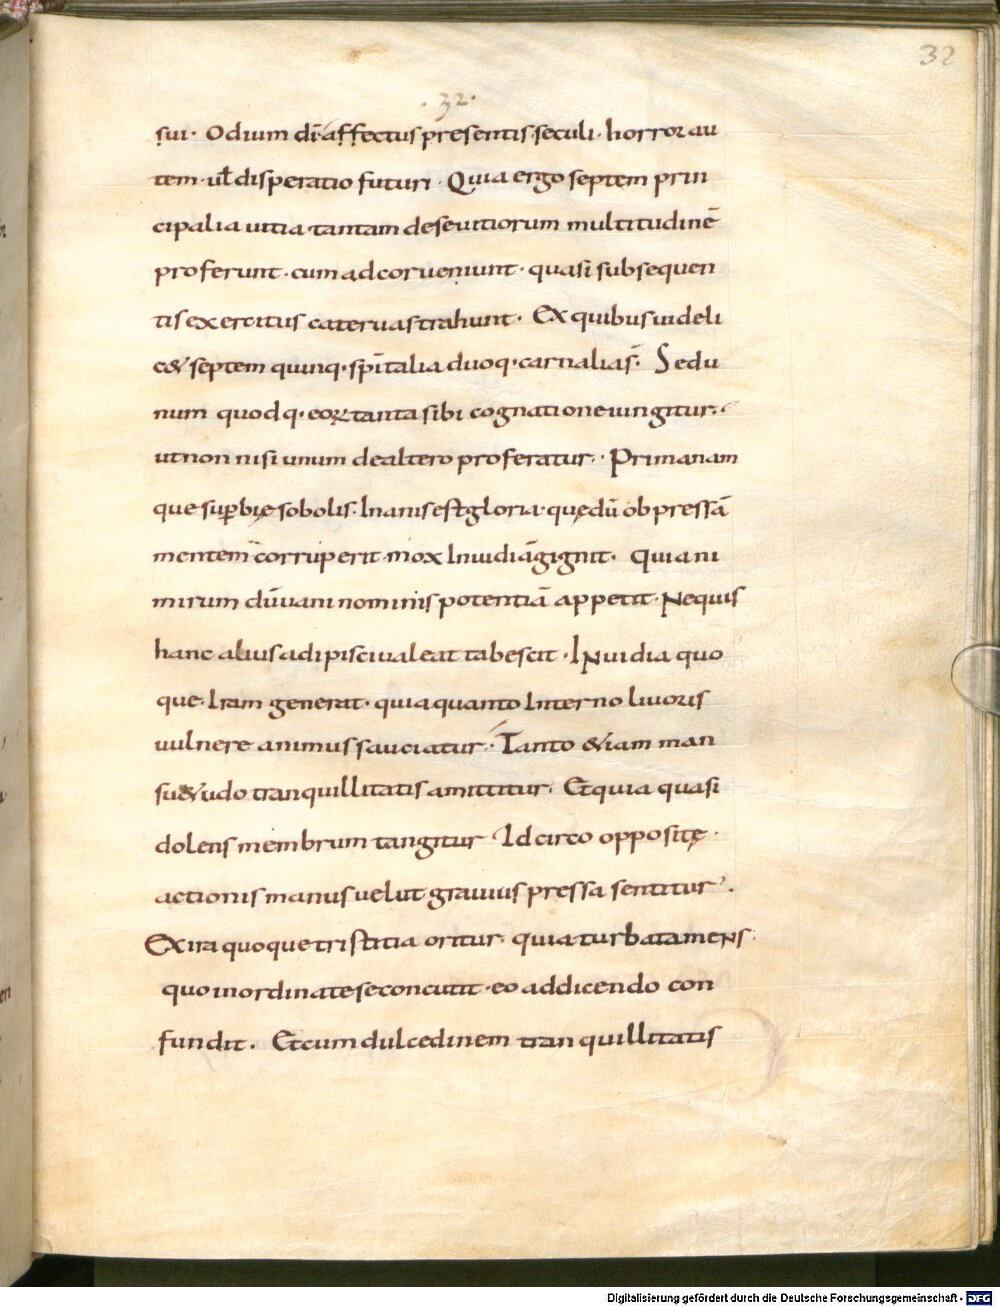 32
.32.
sui· Odium dī affectus presentis seculi· horror au
tem· ul̄ disperatio futuri· Quia ergo septem prin
cipalia uitia tantam de se uitiorum multitudinē
proferunt· cum ad cor ueniunt· quasi subsequen
tis exercitus cateruas trahunt· Ex quibus uideli
c& septem quinq· sp̄italia duoq· carnalia s̄· Sed u
num quodq· eoꝝ tanta sibi cognatione iungitur·
ut non nisi unum de altero proferatur· Prima nam
que sup̱bię sobolis· Inanis est gloria· quę dū obpressā
mentem corruperit mox Inuidiā gignit· Quia ni
mirum dū uani nominis potentiā appetit· Ne quis
hanc alius adipisci ualeat tabescit· INuidia quo
que· Iram generat· quia quanto Interno liuoris
uulnere animus sauciatur· Tanto &iam man
su&udo tranquillitatis amittitur· Et quia quasi
dolens membrum tangitur Idcirco oppositę·
actionis manus uelut grauius pressa sentitur·
Ex ira quoque tristitia oritur· quia turbata meNs
quo inordinate se concutit· eo addicendo con
fundit· Et cum dulcedinem tranquillitatis
Digitalisierung gefördert durch die Deutsche Forschungsgemeinschaft - DFG